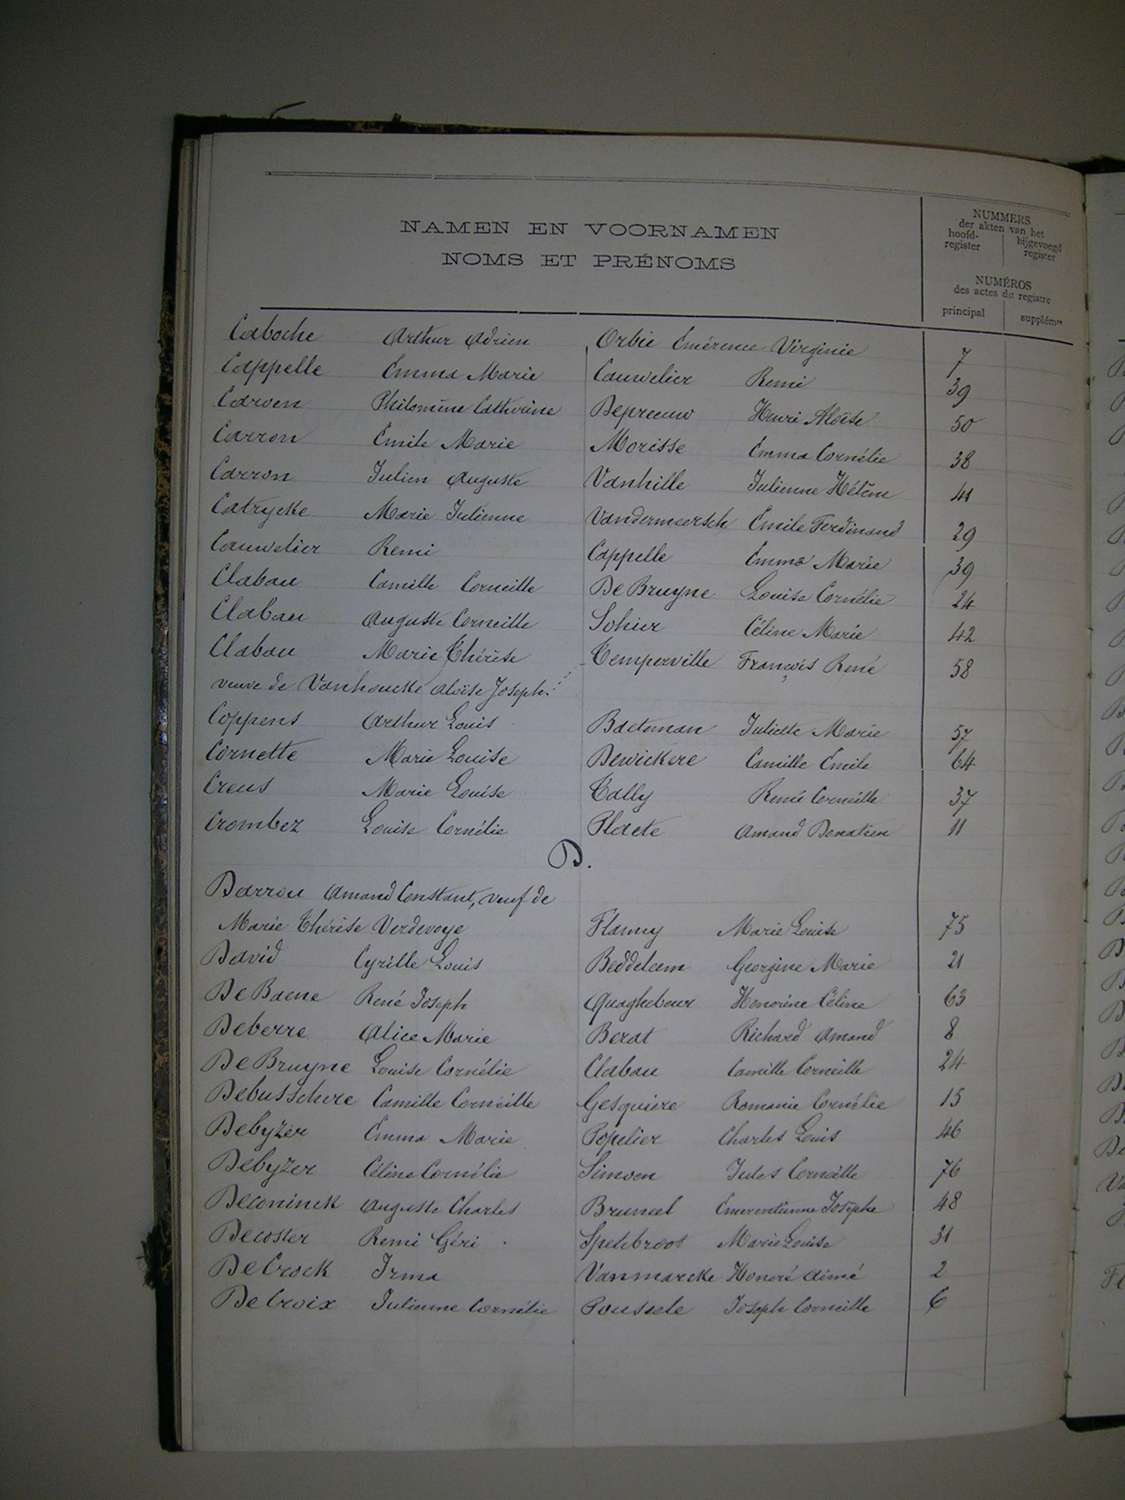 NAMEN EN VOORNAMEN
NOMS ET PRÉNOMS
NUMMERS
der akten van het
hoofd-
register
bijgevoegd
register
NUMÉROS
des actes du registre
principal
supplémre
Caboche Arthur Adrien Orbie Emérence Virginie 7
Cappelle Emma Marie Cauwelier Remi 39
Caroen Philomène Catherine Depreeuw Henri Aloïse 50
Carron Emile Marie Morisse Emma Cornélie 38
Carron Julien Auguste Vanhille Julienne Hélène 41
Catrycke Marie Julienne Vandermeersch Emile Ferdinand 29
Cauwelier Remi Cappelle Emma Marie 39
Clabau Camille Corneille De Bruyne Louise Cornélie 24
Clabau Auguste Corneille Sohier Céline Marie 42
Clabau Marie Thérèse Temperville François René 58
veuve de Vanhoucke Aloïse Joseph
Coppens Arthur Louis Baeteman Juliette Marie 57
Cornette Marie Louise Dewickere Camille Emile 64
Creus Marie Louise Tally René Corneille 37
Crombez Louise Cornélie Plaete Amand Donatien 11
D.
Darrou Amand Constant, veuf de
Marie Thérèse Verdevoye Flamey Marie Louise 75
David Cyrille Louis Beddeleem Georgine Marie 21
De Baene René Joseph Quaghebeur Honorine Céline 63
Deberre Alice Marie Berat Richard Amand 8
De Bruyne Louise Cornélie Clabau Camille Corneille 24
Debusschere Camille Corneille Gesquiere Romanie Cornélie 15
Debyzer Emma Marie Popelier Charles Louis 46
Debyzer Céline Cornélie Simoen Jules Corneille 76
Deconinck Auguste Charles Bruneel Emerentienne Josèphe 48
Decoster Remi Géri Spetebroot Marie Louise 31
De Crock Irma Vanmarcke Honoré Aimé 2
De Croix Julienne Cornélie Poussele Joseph Corneille 6